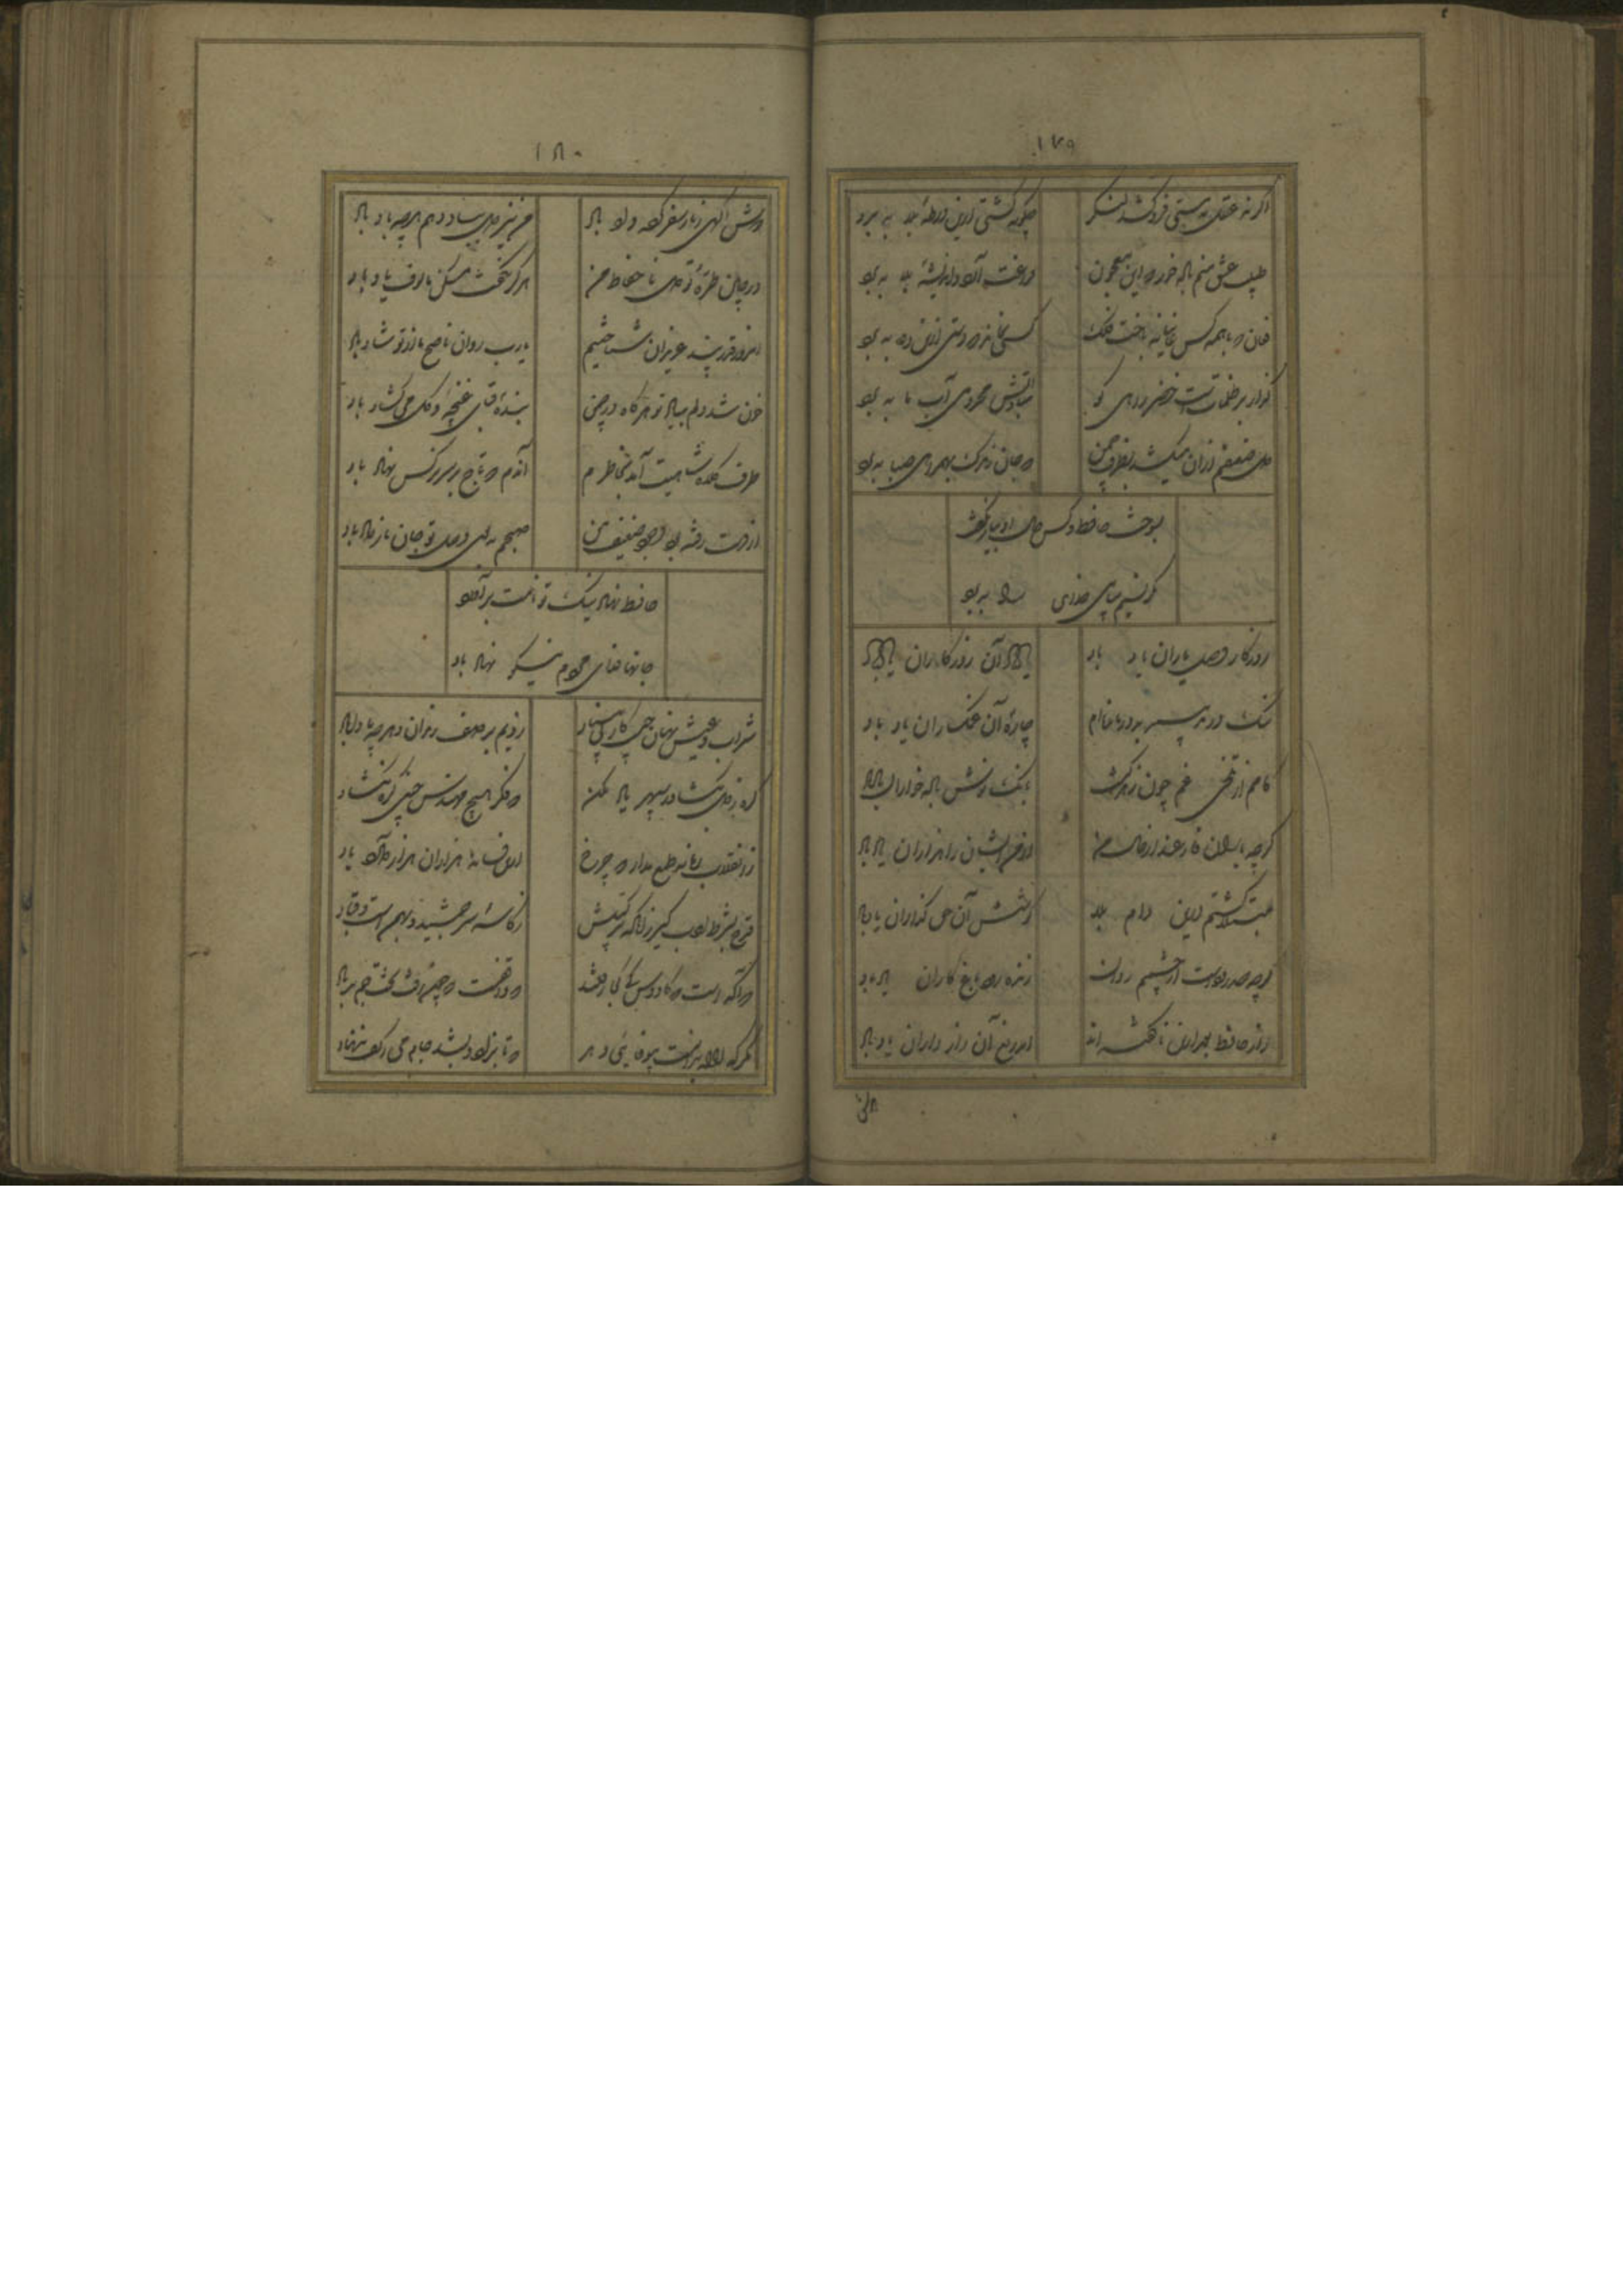 ۱۷۹
اگر نه عقل به مستی فرو کشد لنگر چگونه کشتی ازین ورطهٔ بلا به برد
طبیب عشق منم باده خور که این معجون فراغت آرد و اندیشهٔ بلا به برد
فغان که با همه کس غایبانه باخت فلک کسی نبرد که دستی ازین دغا به برد
گذار بر ظلمات است خضر راهی کو مباد کاتش محرومی آب ما به برد
دل ضعیفم ازان میکشد بطرف چمن که جان ز مرگ ببیماری صبا به برد
بسوخت حافظ و کس حال او بیار نگفت
مگر نسیم پیامی خدای را به برد
روز کار وصل یاران یاد باد یاد باد آن روزگاران یاد باد
چارهٔ آن غمگساران یاد باد
کامم از تلخی غم چون زهر گشت بانگ نوش باده خواران یاد باد
گرچه یاران فارغند از حال من از من ایشان را هزاران یاد باد
مبتلا گشتم درین دام بلا کوشش آن حق گذاران یاد باد
گرچه صد رودست از چشمم روان زنده رود باغ کاران یاد باد
راز حافظ بعد ازین ناگفته ماند ای دریغ آن راز داران یاد باد
۱۸۰
دوش آگهی ز یار سفر کرده داد باد من نیز دل بباد دهم هرچه باد باد
در چین طرهٔ تو دل بی حفاظ من هرگز نگفت مسکن مالوف یاد باد
امروز قدر پند عزیزان شناختیم یارب روان ناصح ما از تو شاد باد
خون شد دلم بیاد تو هرگاه در چمن بند قبای غنچهٔ گل می گشاد باد
طرف کله شاهیت آمد بخاطرم آندم که تاج بر سر نرگس نهاد باد
از دست رفته بود وجود ضعیف من صبحم ببوی وصل تو جان باز داد باد
حافظ نهاد نیک تو کامت برآورد
جانها فدای مردم نیکو نهاد باد
شراب و عیش نهان چیست کار بی بنیاد زدیم بر صف رندان و هرچه بادا باد
گره ز دل بگشا و ز سپهر یاد مکن که فکر هیچ مهندس چنین گره نگشاد
ز انقلاب زمانه طمع مدار که چرخ ازین فسانه هزاران هزار دارد یاد
قدح بشرط ادب گیر زانکه ترکیبش ز کاسهٔ سر جمشید و بهمن است و قباد
که آگه است که کاوس و کی کجا رفتند که واقفست که چون رفت تخت جم بر باد
مگر که لاله بدانست بی وفائی دهر که تا بزاد و بشد جام می ز کف ننهاد